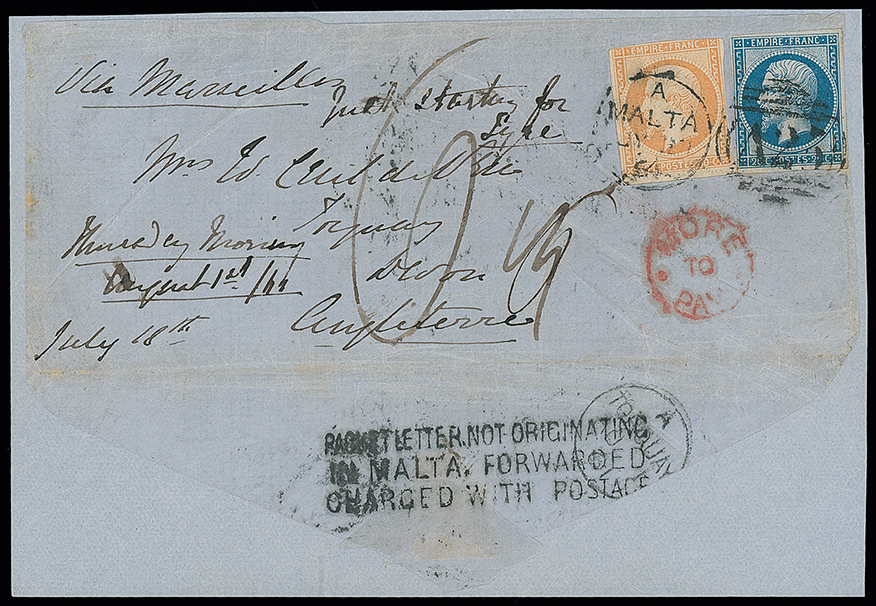 EMPIRE · FRANC ·
EMPIRE · FRANC ·
Via Marseilles
Just starting for
Syra
A
MALTA
Mrs W.
POSTES
20 C POSTES 20 C
Torquay
Thursday Morning
MORE
TO
PAY
Devon
August 1st
July 18th
Angleterre
PACKET LETTER NOT ORIGINATING
IN MALTA. FORWARDED
CHARGED WITH POSTAGE
A
TORQUAY